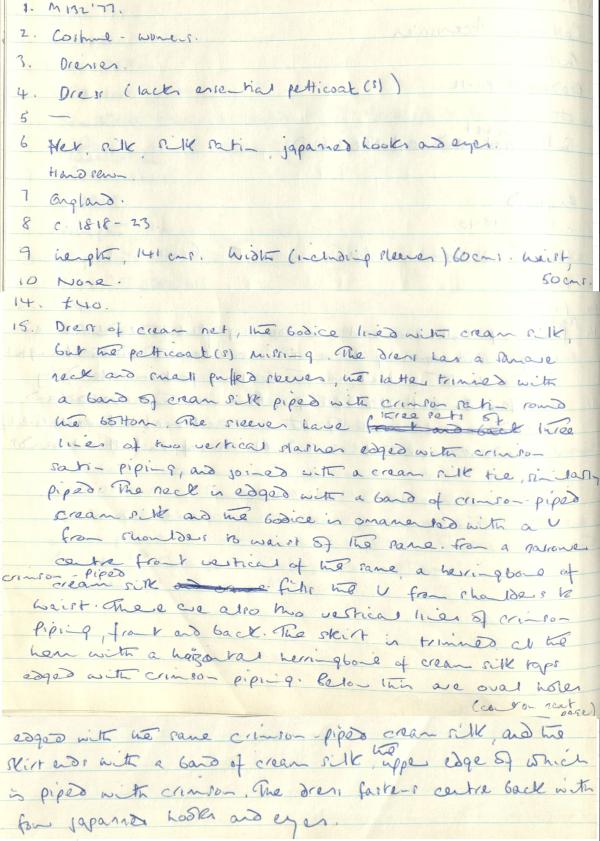 1. M132'77.
2. Costume - womens.
3. Dresses.
4. Dress (lacks essential petticoat(s))
5 —
6 Net, silk, silk satin, japanned hooks and eyes.
Handsewn.
7 England.
8 c. 1818-23
9 Length, 141 cms. Width (including sleeves) 60cms. Waist,
50 cms.
10 None.
14. £40.
15. Dress of cream net, the bodice lined with cream silk,
but the petticoat(s) missing. The dress has a square
neck and small puffed sleeves, the latter trimmed with
a band of cream silk piped with crimson satin round
the bottom. The sleeves have three sets of front and back three
lines of two vertical slashes edged with crimson
satin piping, and joined with a cream silk tie, similarly
piped. The neck is edged with a band of crimson-piped
cream silk and the bodice is ornamented with a U
from shoulders to waist of the same. From a narrower
centre front vertical of the same, a herringbone of
crimson-piped
cream silk fills the U from shoulders to
waist. There are also two vertical lines of crimson
piping, front and back. The skirt is trimmed at the
hem with a horizontal herringbone of cream silk
edged with crimson piping. Below this are oval holes
(cont on next page)
edged with the same crimson-piped cream silk, and the
skirt ends with a band of cream silk, the upper edge of which
is piped with crimson. The dress fastens centre back with
four japanned hooks and eyes.